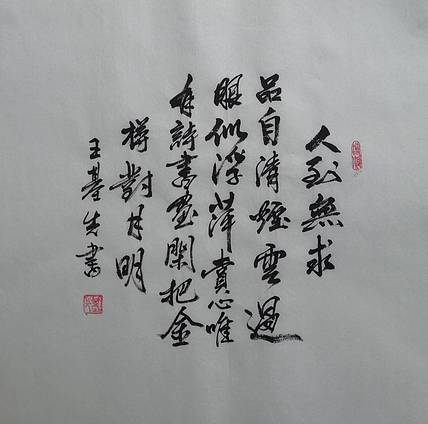 人到無求
品自清煙雲過
眼似浮萍賞心唯
有詩書畫閑把金
樽對月明
王基書